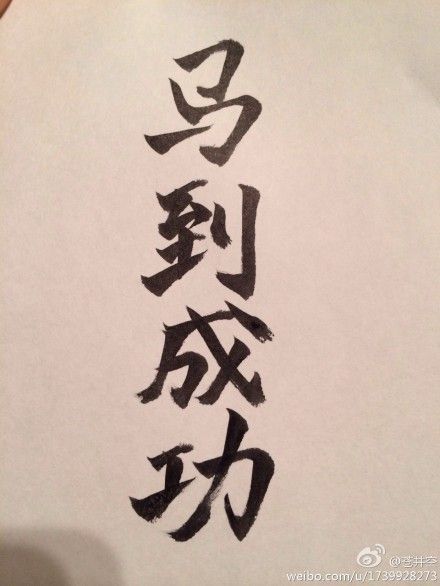 马到成功
@苍井空
weibo.com/u/1739928273